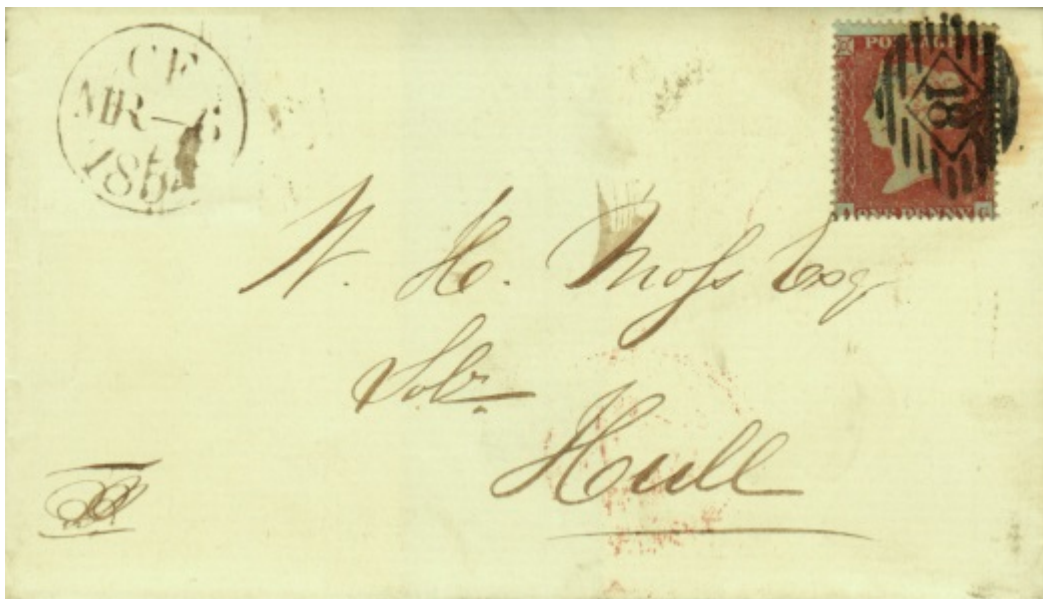 CF
MR-6
185
POSTAGE
18
ONE PENNY
W. H. Moſs Esq
Solr.
Hull